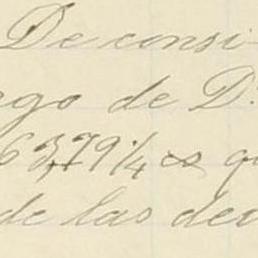 De consi-
ego de D.
63,79 1/4 @ q
de las deu